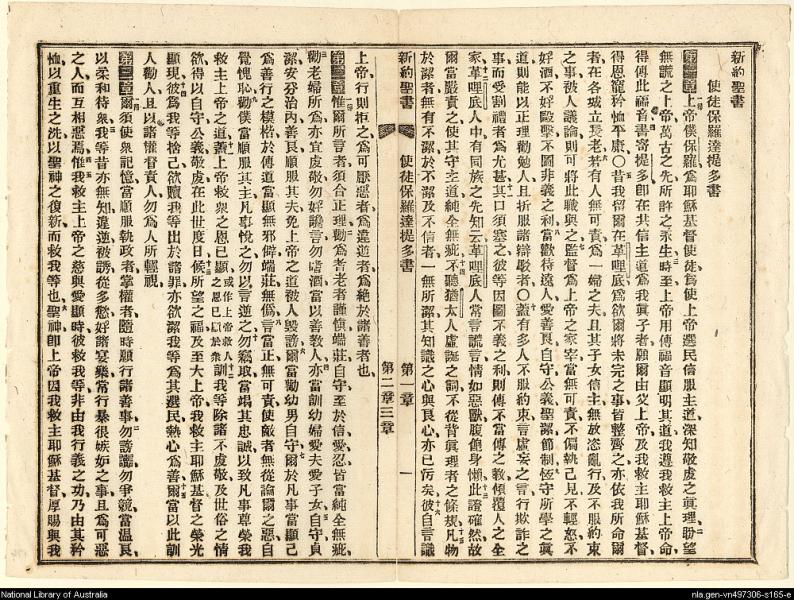 新約聖書
使徒保羅達提多書
第一章 上帝僕保羅爲耶穌基督使徒爲使上帝選民信服主道深知敬虔之眞理盼望
無謊之上帝萬古之先所許之永生時至上帝用傳福音顯明其道我遵我救主上帝命
得傳此福音書寄提多卽在共信主道爲我眞子者願爾由父上帝及我救主耶穌基督
得恩寵矜恤平康○昔我留爾在革哩底爲欲爾將未完之事皆整齊之亦依我所命爾
者在各城立長老若有人無可責爲一婦之夫且其子女信主無放恣亂行及不服約束
之事被人議論則可將此職與之監督爲上帝之家宰當無可責不偏執己見不輕怒不
好酒不好毆擊不圖非義之利當歡待遠人愛善良自守公義聖潔節制恆守所學之眞
道則能以正理勸勉人且折服諸辯駁者○蓋有多人不服約束言虛妄之言行欺詐之
事而受割禮者爲尤甚其口須塞之彼等因圖不義之利則傳不當傳之教傾覆人之全
家革哩底人中有同族之先知云革哩底人常言謊言情如惡獸腹飽身懶此證確然故
爾當嚴責之使其守主道純全無疵不聽猶太人虛誕之詞不從背眞理者之條規凡物
於潔者無有不潔於不潔及不信者一無所潔其知識之心與良心亦已污矣彼自言識
新約聖書 使徒保羅達提多書 第一章 一
第二章三章
上帝行則拒之爲可厭惡者爲違逆者爲絶於諸善者也
第二章 惟爾所言者須合正理勸爲耆老者謹愼端莊自守至於信愛忍皆當純全無疵
勸老婦所爲亦宜虔敬勿好讒言勿嗜酒當以善教人亦當訓幼婦愛夫愛子女自守貞
潔安分治內善良順服其夫免上帝之道被人毀謗爾當勸幼男自守爾於凡事當顯己
爲善行之模楷於傳道當顯無邪僻端莊無僞言當正無可責使敵者無從論爾之惡自
覺愧恥勸僕當順服其主凡事悅之勿以言逆之勿竊取當竭其忠誠以致凡事尊榮我
救主上帝之道蓋上帝救衆之恩已顯或作上帝救人之恩已顯於衆訓我等除諸不虔敬及世俗之情
欲得以自守公義敬虔在此世度日候所望之福及至大上帝我救主耶穌基督之榮光
顯現彼爲我等捨己欲贖我等出於諸罪亦欲潔我等爲其選民熱心爲善爾當以此訓
人勸人且以諸權督責人勿爲人所輕視
第三章 爾須使衆記憶當順服執政者掌權者隨時願行諸善事勿謗讟勿爭競當溫良
以柔和待衆我等昔亦無知違逆被誘從多慾好諸宴樂常行暴很嫉妒之事且爲可惡
之人而互相惡焉惟我救主上帝之慈與愛顯時彼救我等非由我行義之功乃由其矜
恤以重生之洗以聖神之復新而救我等也聖神卽上帝因我救主耶穌基督厚賜與我
National Library of Australia
nla.gen-vn497306-s165-e